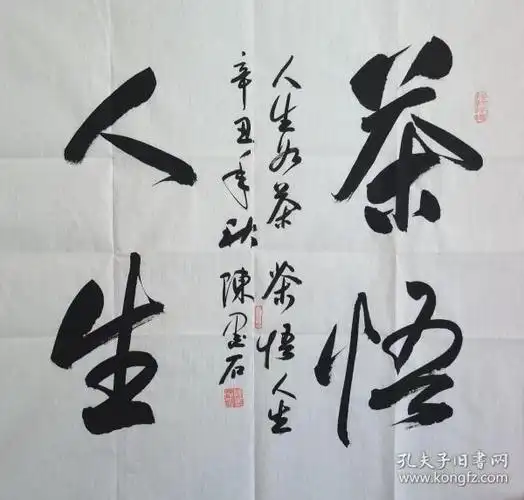 茶悟
人生如茶 茶悟人生
辛丑年秋 陳墨石
人生
孔夫子旧书网
www.kongfz.com